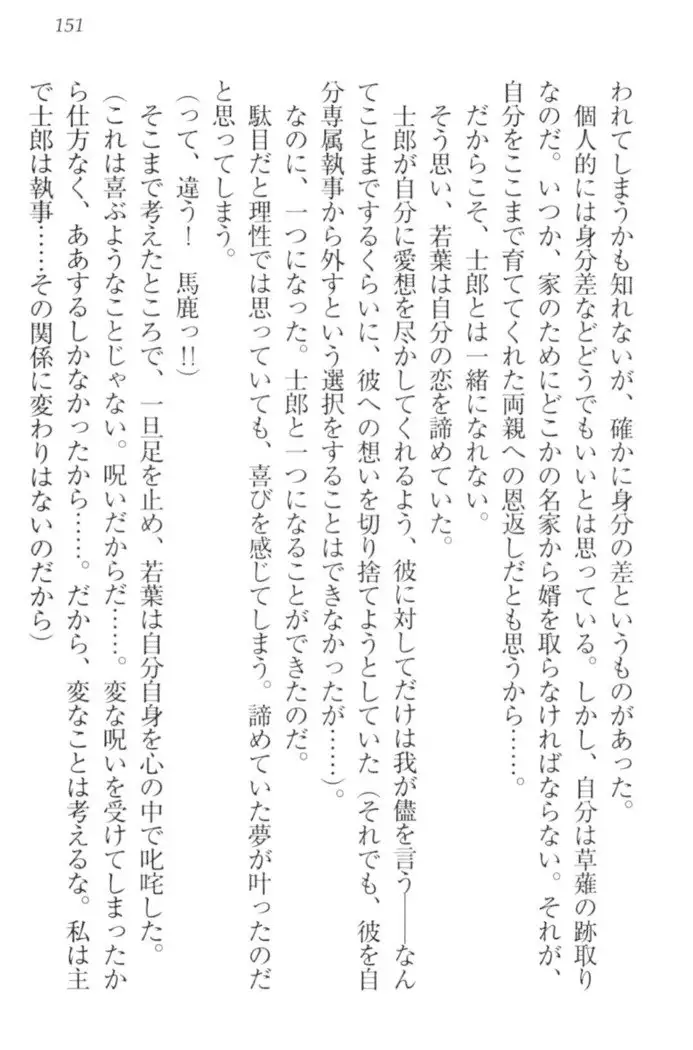 151
われてしまうかも知れないが、確かに身分の差というものがあった。
個人的には身分差などどうでもいいとは思っている。しかし、自分は草薙の跡取り
なのだ。いつか、家のためにどこかの名家から婿を取らなければならない。それが、
自分をここまで育ててくれた両親への恩返しだとも思うから……。
だからこそ、士郎とは一緒になれない。
そう思い、若葉は自分の恋を諦めていた。
士郎が自分に愛想を尽かしてくれるよう、彼に対してだけは我が儘を言う――なん
てことまでするくらいに、彼への想いを切り捨てようとしていた（それでも、彼を自
分専属執事から外すという選択をすることはできなかったが……）。
なのに、一つになった。士郎と一つになることができたのだ。
駄目だと理性では思っていても、喜びを感じてしまう。諦めていた夢が叶ったのだ
と思ってしまう。
（って、違う！　馬鹿っ!!）
そこまで考えたところで、一旦足を止め、若葉は自分自身を心の中で叱咤した。
（これは喜ぶようなことじゃない。呪いだからだ……。変な呪いを受けてしまったか
ら仕方なく、ああするしかなかったから……。だから、変なことは考えるな。私は主
で士郎は執事……その関係に変わりはないのだから）